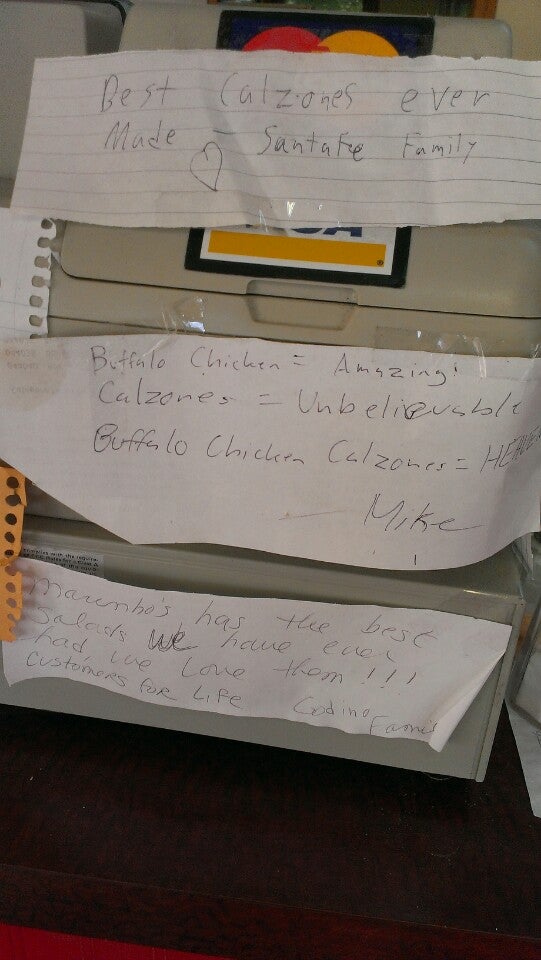 Best Calzones ever
Made - Santafe Family
Buffalo Chicken = Amazing!
Calzones = Unbelievable
Buffalo Chicken Calzones =
- Mike
has the best
Salads we have ever
had, we Love them!!!
Customers for Life